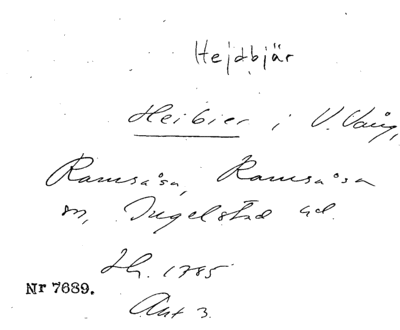 Hejdbjär
Heibier i V. Vång,
Ramsåsa, Ramsåsa
sn, Ingelstad hd.
Sh. 1785
Nr 7689.
Akt 3